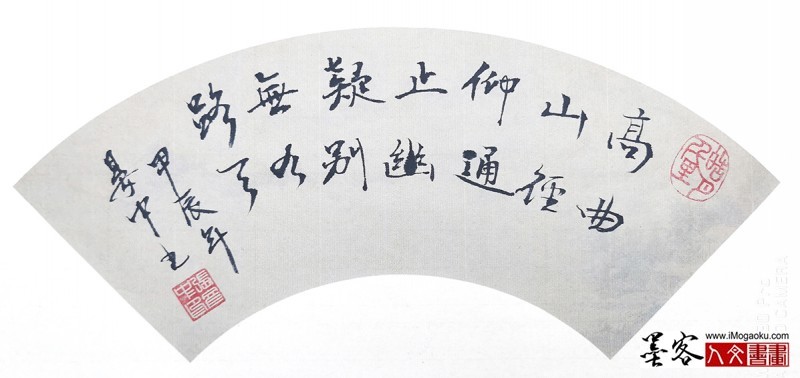 高山仰止疑無路
曲徑通幽别有天
甲辰年
中书
墨客
www.iMogaoku.com
人文書畫